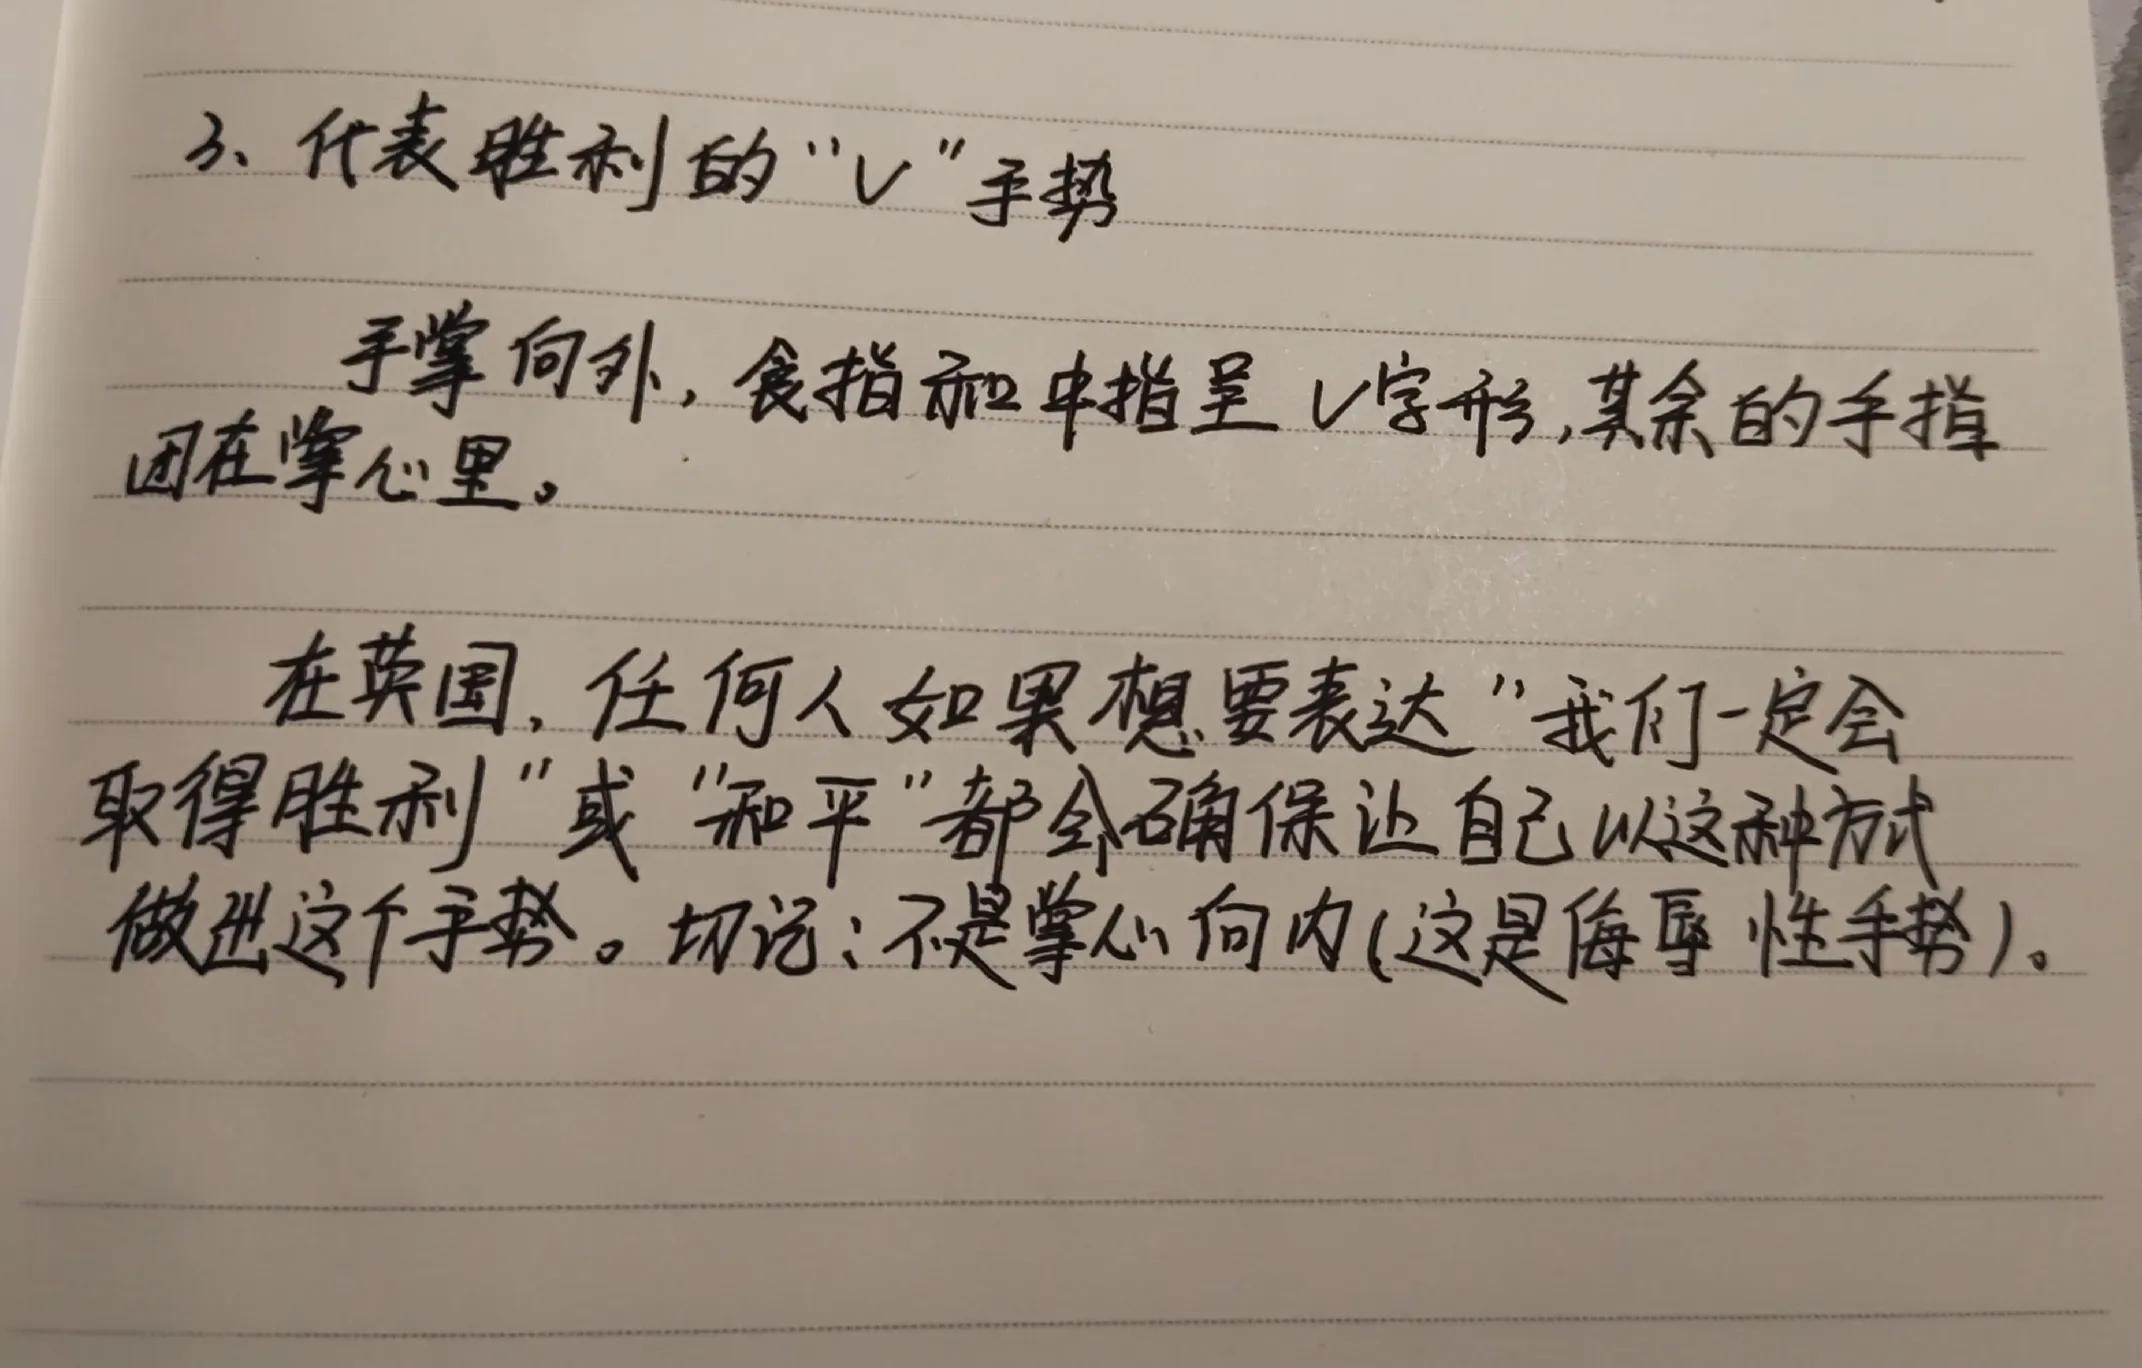 3、代表胜利的“V”手势
手掌向外，食指和中指呈V字形，其余的手指
团在掌心里。
在英国，任何人如果想要表达“我们一定会
取得胜利”或“和平”都会确保让自己以这种方式
做出这个手势。切记：不是掌心向内（这是侮辱性手势）。